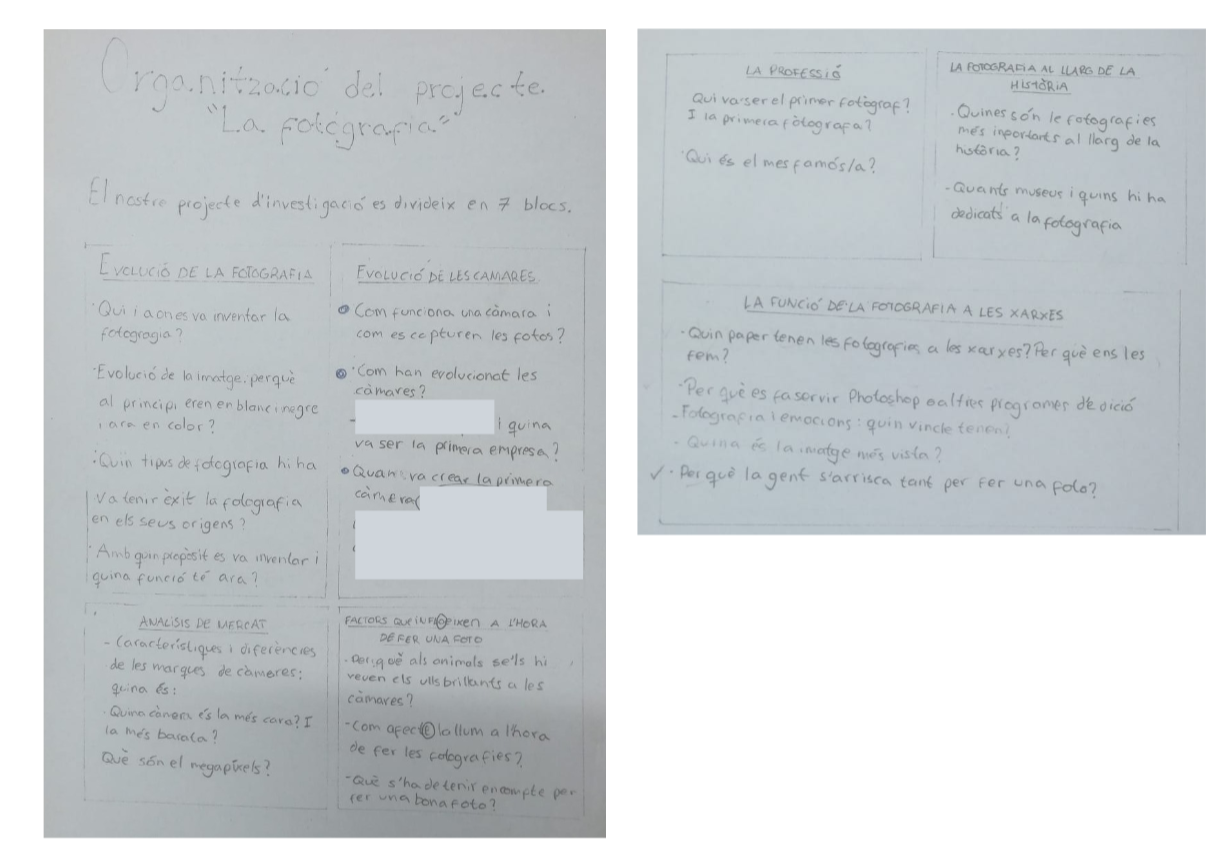 Organització del projecte.
"La fotografia"
El nostre projecte d'investigació es divideix en 7 blocs.
EVOLUCIÓ DE LA FOTOGRAFIA
·Qui i a ones va inventar la
fotogragia?
·Evolució de la imatge. perquè
al principi eren en blanc i negre
i ara en color?
·Quin tipus de fotografia hi ha
va tenir èxit la fotografia
en els seus origens?
·Amb quin propòsit es va inventar i
quina funció té ara?
EVOLUCIÓ DE LES CAMARES
Com funciona una càmara i
com es capturen les fotos?
·Com han evolucionat les
càmares?
- i quina
va ser la primera empresa?
va crear la primera
càmera
ANALISIS DE MERCAT
- Característiques i diferències
de les marques de càmeres:
quina és:
·Quina cànera és la més cara? I
la més barata?
Què són el megapíxels?
FACTORS QUE A L'HORA
DE FER UNA FOTO
·Per què als animals se'ls hi
veuen els ulls brillants a les
càmares?
-Com afecte la llum a l'hora
de fer les fotografies?
-Què s'ha de tenir en compte per
fer una bona foto?
LA PROFESSIÓ
Qui va ser el primer fotògraf?
I la primera fòtografa?
·Qui és el mes famós/a?
LA FOTOGRAFIA AL LLARG DE LA
HISTÒRIA
·Quines són le fotografies
més inportants al llarg de la
història?
-Quants museus i quins hi ha
dedicats a la fotografia
LA FUNCIÓ DE LA FOTOGRAFIA A LES XARXES
·Quin paper tenen les fotografies a les xarxes? Per què ens les
fem?
·Per què es fa servir Photoshop o altres programes d'edició
-Fotografia i emocions: quin vincle tenen?
- Quina és la imatge més vista?
✓ ·Per què la gent s'arrisca tant per fer una foto?